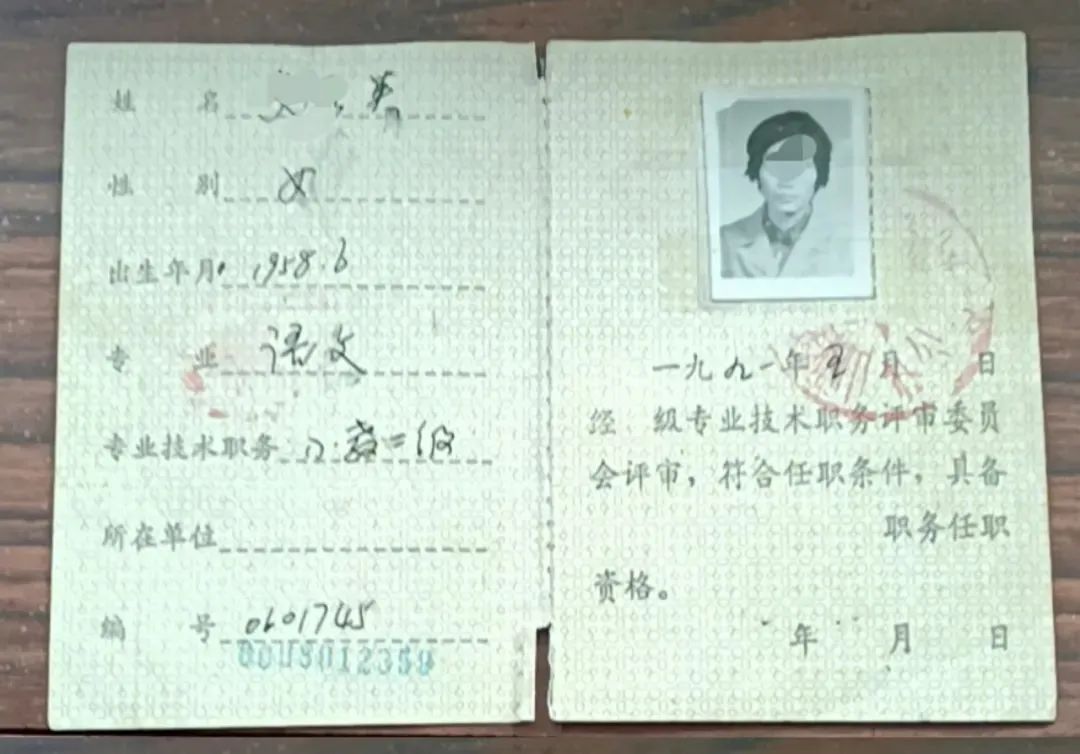 姓 名 英
性 别 女
出生年月 1958.6
专 业 语文
专业技术职务 小教二级
所在单位
编 号 0601745
一九九一年 月 日
经 级专业技术职务评审委员
会评审，符合任职条件，具备
职务任职
资格。
年 月 日